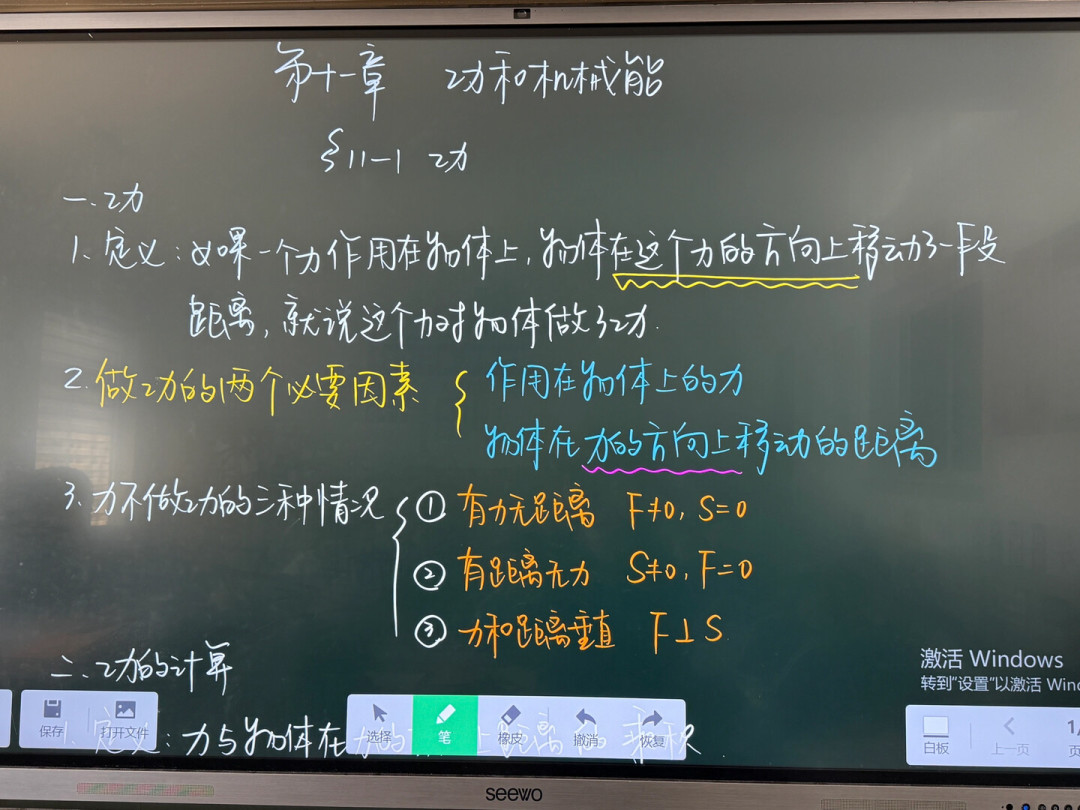 第十一章 功和机械能
§11-1 功
一.功
1.定义:如果一个力作用在物体上,物体在这个力的方向上移动了一段
距离,就说这个力对物体做了功.
2.做功的两个必要因素
作用在物体上的力
物体在力的方向上移动的距离
3.力不做功的三种情况
① 有力无距离 F≠0,S=0
② 有距离无力 S≠0,F=0
③ 力和距离垂直 F⊥S
二.功的计算
1.定义:力与物体在力的方向上距离的乘积
激活 Windows
转到"设置"以激活 Wind
保存
打开文件
选择
笔
橡皮
撤消
恢复
白板
上一页
1/
页
seewo